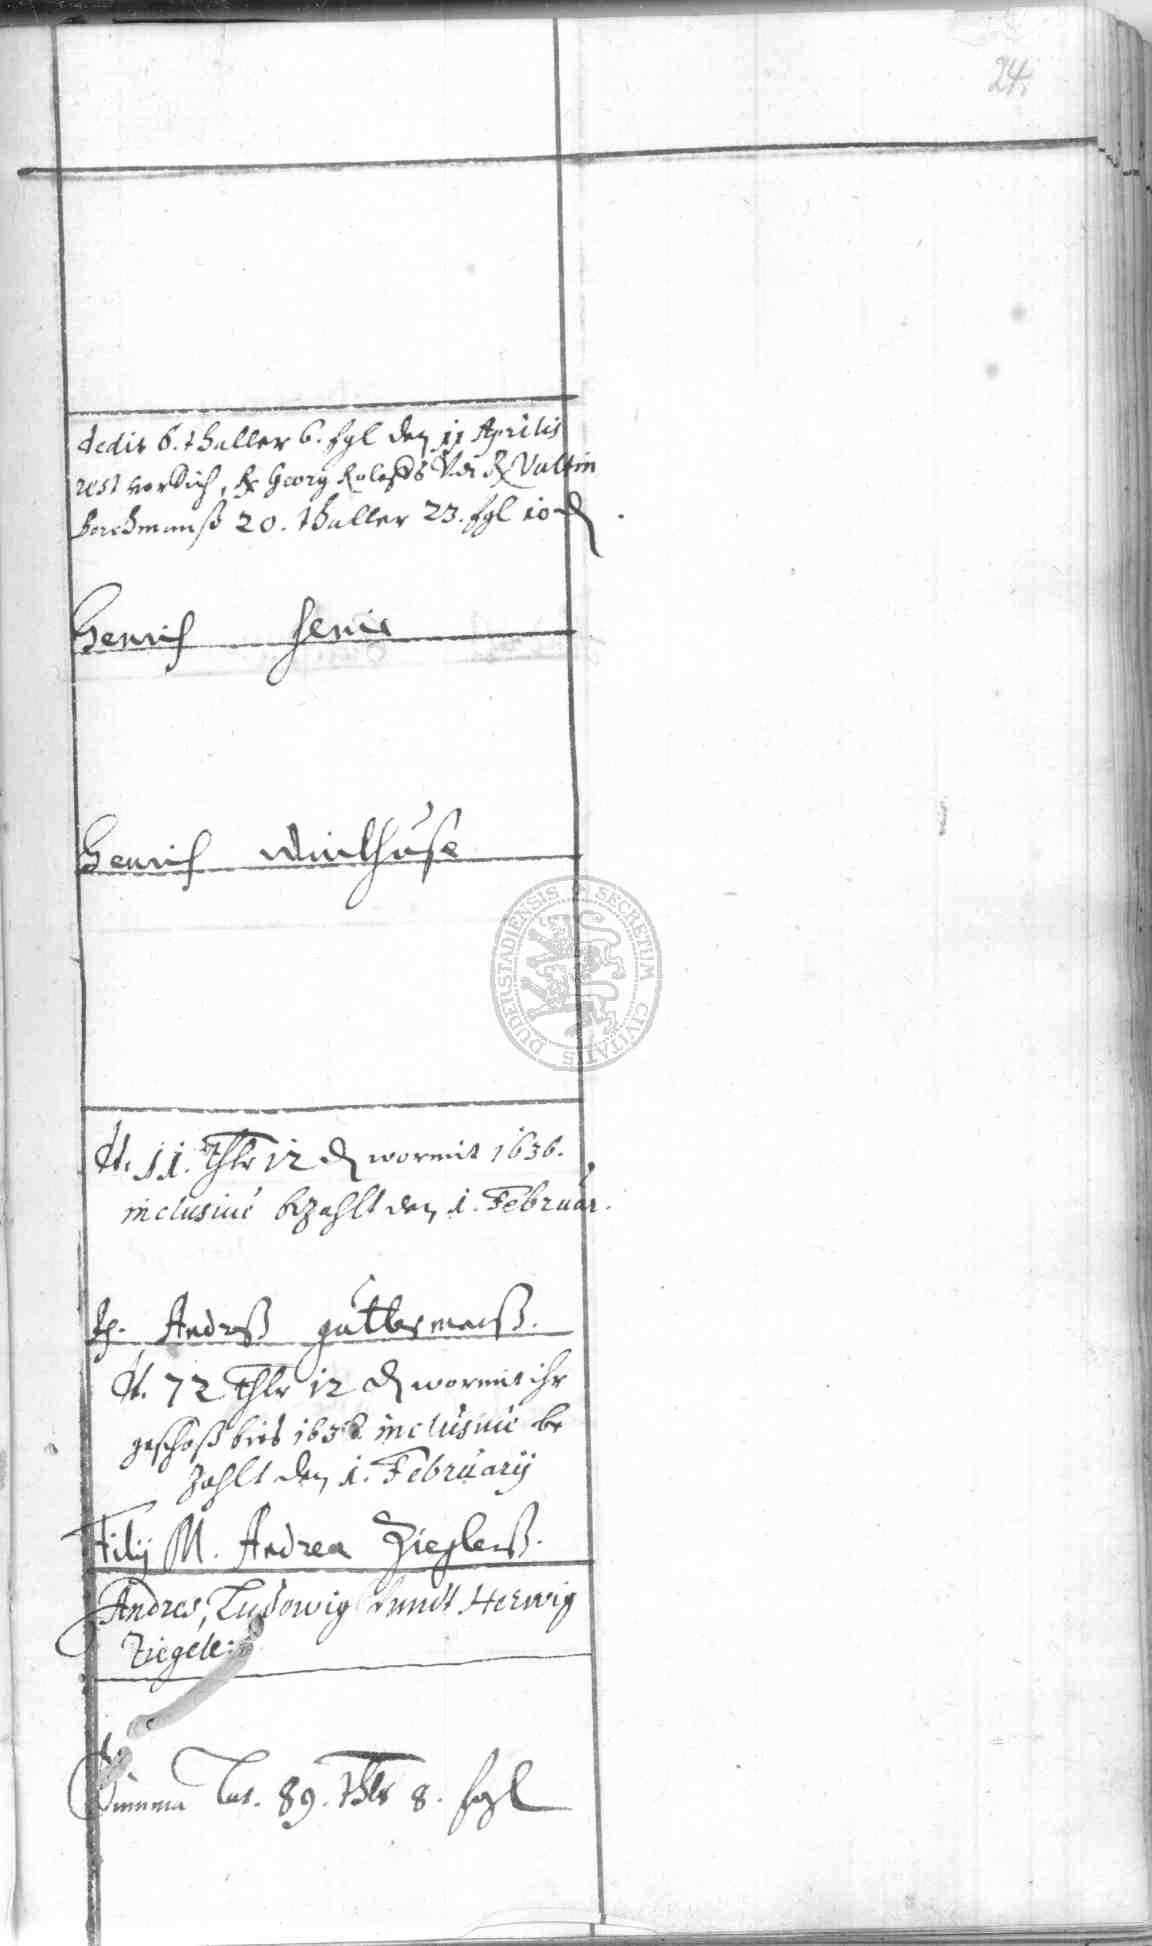 24.
dedit 6. thaller 6. sgl den 11 Aprilis
rest noch sich, Georg Valtin
Borchmanß 20. thaller 23. sgl 10 ₰.
Henrich Henis
Henrich Winthuse
dt. 11. Thlr 12 ₰ wormit 1636.
inclusiuè bezahlt den 1. Februar.
H. Andreß guttermanß.
dt. 72 Thlr 12 ₰ wormit ihr
geschoß bies 1636 inclusiuè be
zahlt den 1. February
Filij M. Andrea Zieglerß.
Andres, Ludowig undt Herwig
Ziegeler
DUDERSTADIENSIS SECRETUM CIVITATIS
Summa Lat. 89. Thlr 8. sgl